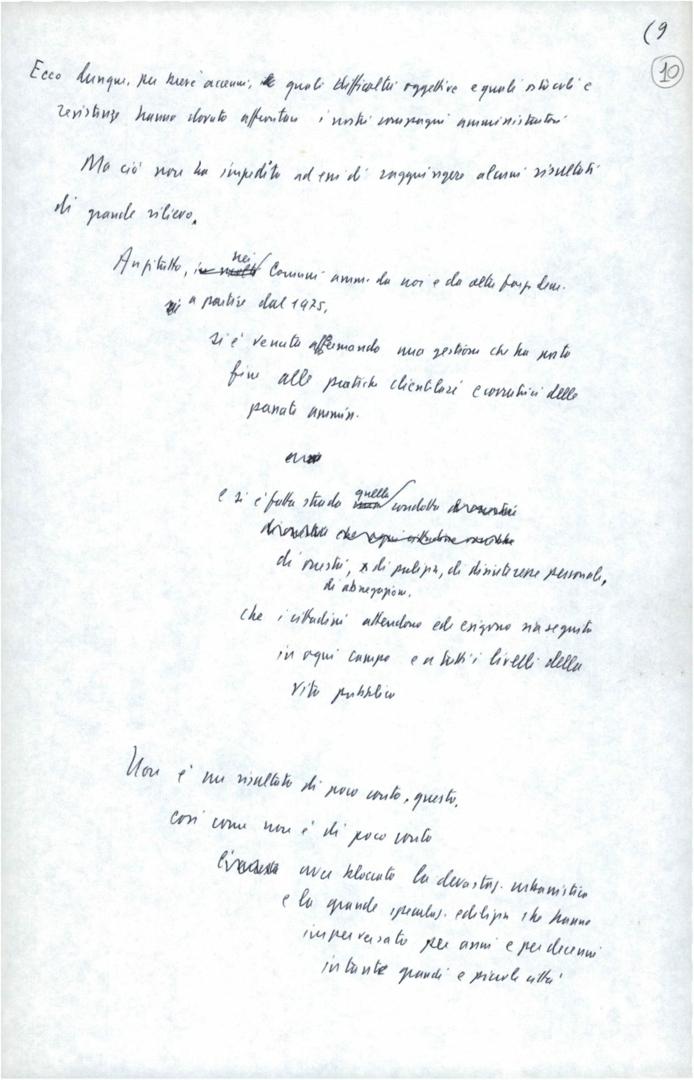 (9
10
Ecco dunque, per brevi accenni, quali difficoltà oggettive e quali ostacoli e
resistenze hanno dovuto affrontare i nostri compagni amministratori
Ma ciò non ha impedito ad essi di raggiungere alcuni risultati
di grande rilievo.
Anzitutto, nei Comuni amm. da noi e da altre forze dem.
a partire dal 1975,
si è venuta affermando una gestione che ha posto
fine alle pratiche clientelari e corruttrici delle
passate ammin.
e si è fatta strada quella condotta
di onestà, di pulizia, di disinteresse personale,
di abnegazione.
che i cittadini attendono ed esigono sia seguita
in ogni campo e a tutti i livelli della
vita pubblica
Non è un risultato di poco conto, questo,
così come non è di poco conto
aver bloccato la devastaz. urbanistica
e la grande speculaz. edilizia che hanno
imperversato per anni e per decenni
in tante grandi e piccole città